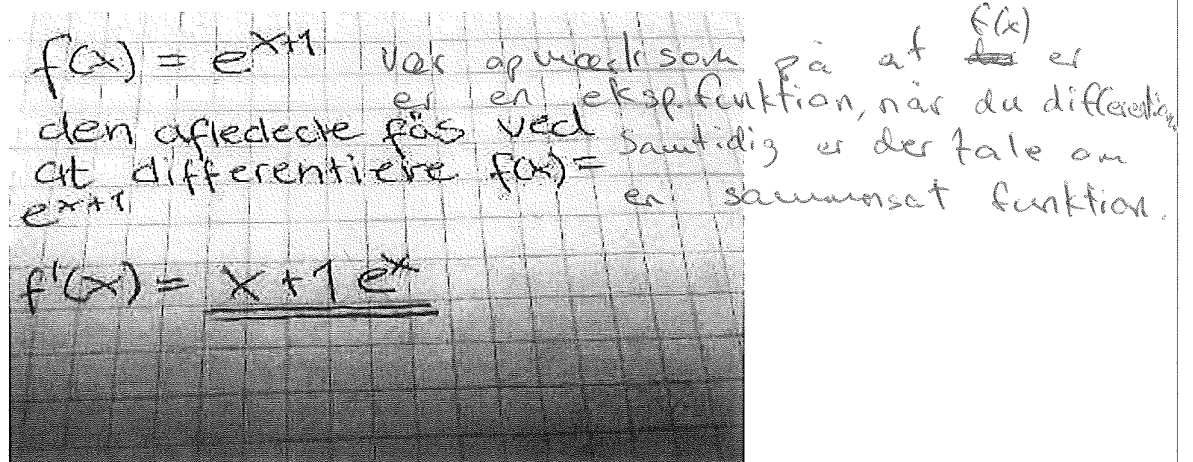 f(x) = e^{x+1}
den afledede fås ved
at differentiere f(x)=
e^{x+1}
f'(x) = x+1 e^x
Vær opmærksom på at f(x) er
en eksp. funktion, når du differentier
Samtidig er der tale om
en sammensat funktion.